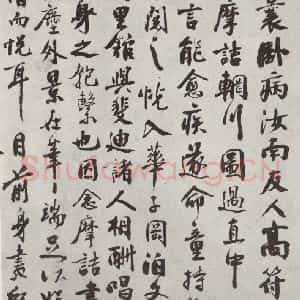 曩臥病汝南友人高符
摩詰輞川圖過直中
言能愈疾遂命童持
閱之恍入華子岡泊文
里館與斐迪諸人相酬唱
身之匏繫也因念摩詰畫
塵外景在筆端足以娛
情而悅耳目前身畫師
Shufawang.CN